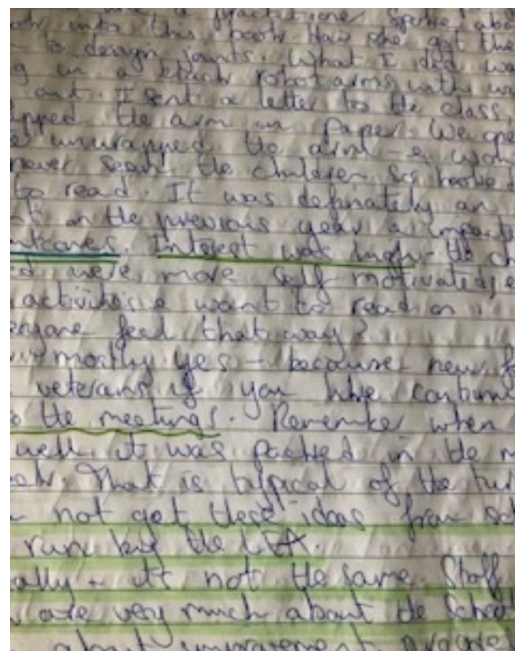 a practitioner spoke abo
into this book How she got the
to design joints. What I did wa
g in a robot arms with w
out. I sent a letter to the class,
pped the arm in paper. We ope
unwrapped the arm - e
never seen the children so hooked
to read. It was definately an
on the previous year a
utcomes. Interest was high the ch
ed were more self motivated e
activities e want to read on.
eryone feel that way?
mostly yes - because new f
veterans if you like continue
o the meetings. Remember when
well it was packed in the m
That is typical of the
not get these ideas from
run by the LEA.
ally - It not the same. Staff
are very much about the School
about improvement